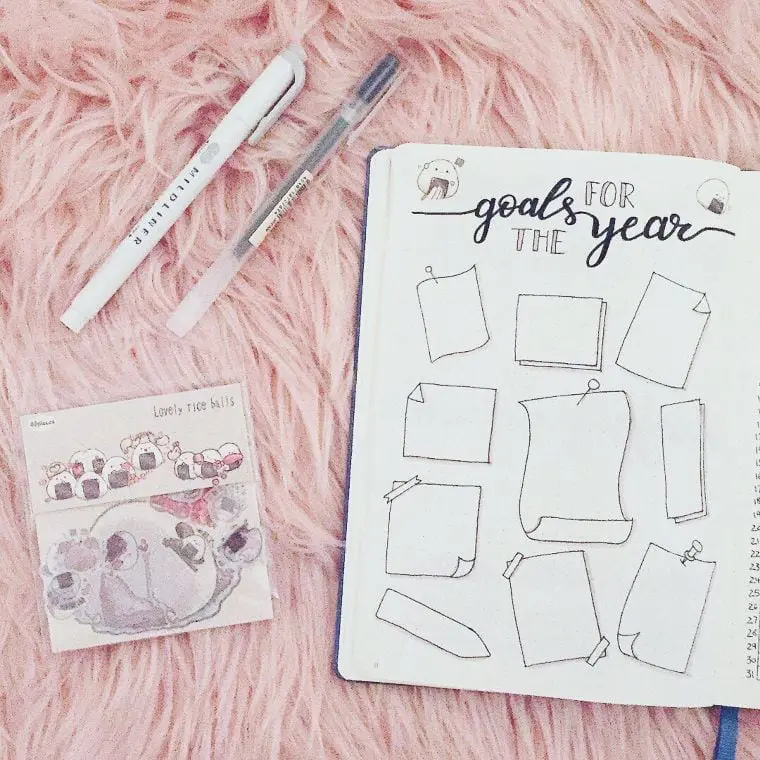 MILDLINER
Lovely rice balls
goals FOR
THE year
17
18
19
20
21
22
23
24
25
26
27
28
29
30
31